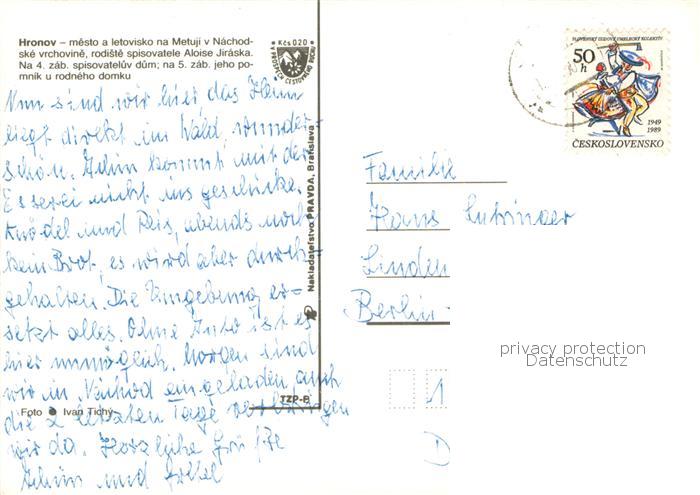 Hronov – město a letovisko na Metují v Náchod-
ské vrchovině, rodiště spisovatele Aloise Jiráska.
Na 4. záb. spisovatelův dům; na 5. záb. jeho po-
mník u rodného domku
Kčs 0.20
V PROSPĚCH CESTOVNÉHO RUCHU
SLOVENSKÝ ĽUDOVÝ UMELECKÝ KOLEKTÍV
50 h
1949
1989
ČESKOSLOVENSKO
Nun sind wir hier, das Heim
liegt direkt im Wald, wunder-
schön. Achim kommt mit der
Esserei nicht ins geschicke.
Knödel und Reis, abends noch
kein Brot, es wird aber durch-
gehalten. Die Umgebung er-
setzt alles. Ohne Auto ist es
hier unmöglich. Morgen sind
wir in Náchod eingeladen, auch
die 2 letzten Tage verbringen
wir da. Herzliche Grüße
Achim und
Nakladateľstvo PRAVDA, Bratislava
TZP-P
Foto Ivan Tichý
Familie
Hans
Linden
Berlin-
1
D
privacy protection
Datenschutz